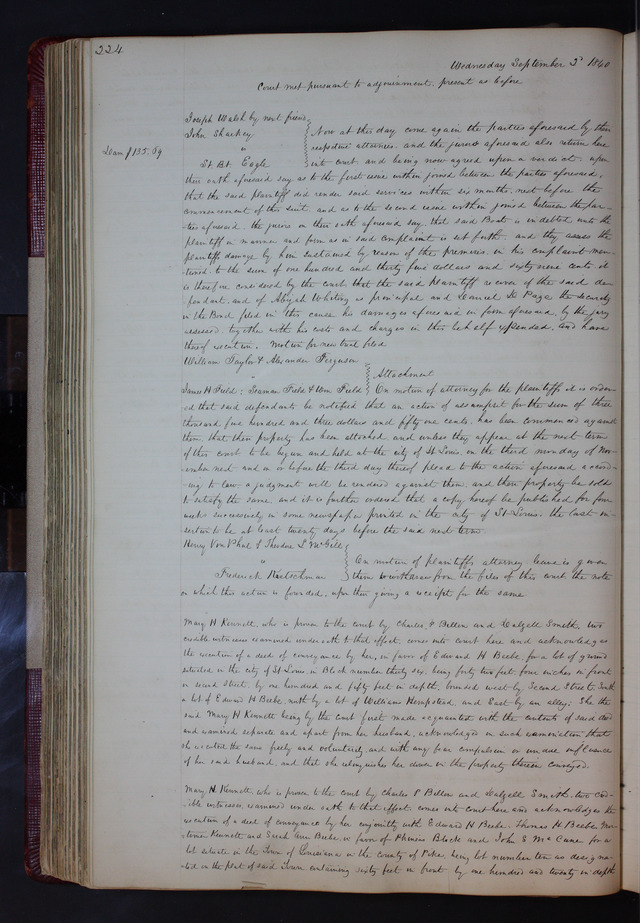 224
Wednesday September 2d 1840
Court met pursuant to adjournment. present as before
Joseph Walsh by next friend
John Sharkey
"
St Bt. Eagle
Dam $135.69
Now at this day come again the parties aforesaid by their
respective attornies. and the jurors aforesaid also return here
into court. and being now agreed upon a verdict. upon
their oath aforesaid say as to the first issue within joined between the parties aforesaid,
that the said plaintiff did render said services within six months next before the
commencement of this suit. and as to the second issue within joined between the par-
ties aforesaid. the jurors on their oath aforesaid say. that said Boat is indebted unto the
plaintiff in manner and form as in said complaint is set forth. and they assess the
plaintiffs damage by him sustained by reason of the premises. in his complaint men-
tioned. to the sum of one hundred and thirty five dollars and sixty nine cents. it
is therefore considered by the court that the said plaintiff recover of the said de-
fendant. and of Abijah Whiting as principal and Daniel D. Page the security
in the Bond filed in this cause his damages aforesaid in form aforesaid. by the jury
assessed. together with his costs and charges in this behalf expended. and have
thereof execution. Motion for new trial filed
William Taylor & Alexander Ferguson
"
James H Field, Seaman Field & Wm Field
Attachment
On motion of attorney for the plaintiffs it is order-
ed that said defendants be notified that an action of assumpsit for the sum of three
thousand five hundred and three dollars and fifty one cents. has been commenced against
them, that their property has been attached. and unless they appear at the next term
of this court to be begun and held at the city of St Louis, on the third monday of Nov-
ember next. and on or before the third day thereof plead to the action aforesaid accord-
ing to law. a judgment will be rendered against them. and their property be sold
to satisfy the same. and it is further ordered that a copy hereof be published for four
weeks successively in some newspaper printed in the city of St Louis. the last in-
sertion to be at least twenty days before the said next term.
Henry Von Phul & Theodore L McGill
"
Frederick Kretschman
On motion of plaintiffs attorney leave is given
them to withdraw from the files of this court the note
on which this action is founded. upon their giving a receipt for the same
Mary H Kennett. who is proven to the court by Charles P Billon and Dalzell Smith, two
credible witnesses examined under oath to that effect. comes into court here and acknowledges
the execution of a deed of conveyance by her. in favor of Edward H Beebe. for a lot of ground
situated in the city of St Louis in Block number thirty six. being forty two feet four inches in front
on second street. by one hundred and fifty feet in depth. bounded west by Second Street. South
a lot of Edward H Beebe. north by a lot of William Hempstead. and East by an alley. She. the
said Mary H Kennett being by the court first made acquainted with the contents of said deed
and examined separate and apart from her husband. acknowledged on such examination that
she executed the same freely and voluntarily. and with any fear compulsion or undue influence
of her said husband. and that she relinquishes her dower in the property therein conveyed.
Mary H. Kennett. who is proven to the court by Charles P Billon and Dalzell Smith. two cred-
ible witnesses. examined under oath to that effect. comes into court here and acknowledges the
execution of a deed of conveyance by her conjointly with Edward H Beebe. Thomas H Beebe
Kennett and Sarah Ann Beebe. in favor of Phineas Block and John S McCune. for a
lot situate in the Town of Louisiana in the county of Pike being lot number ten as designa-
ted on the plat of said Town containing sixty feet in front by one hundred and twenty in depth